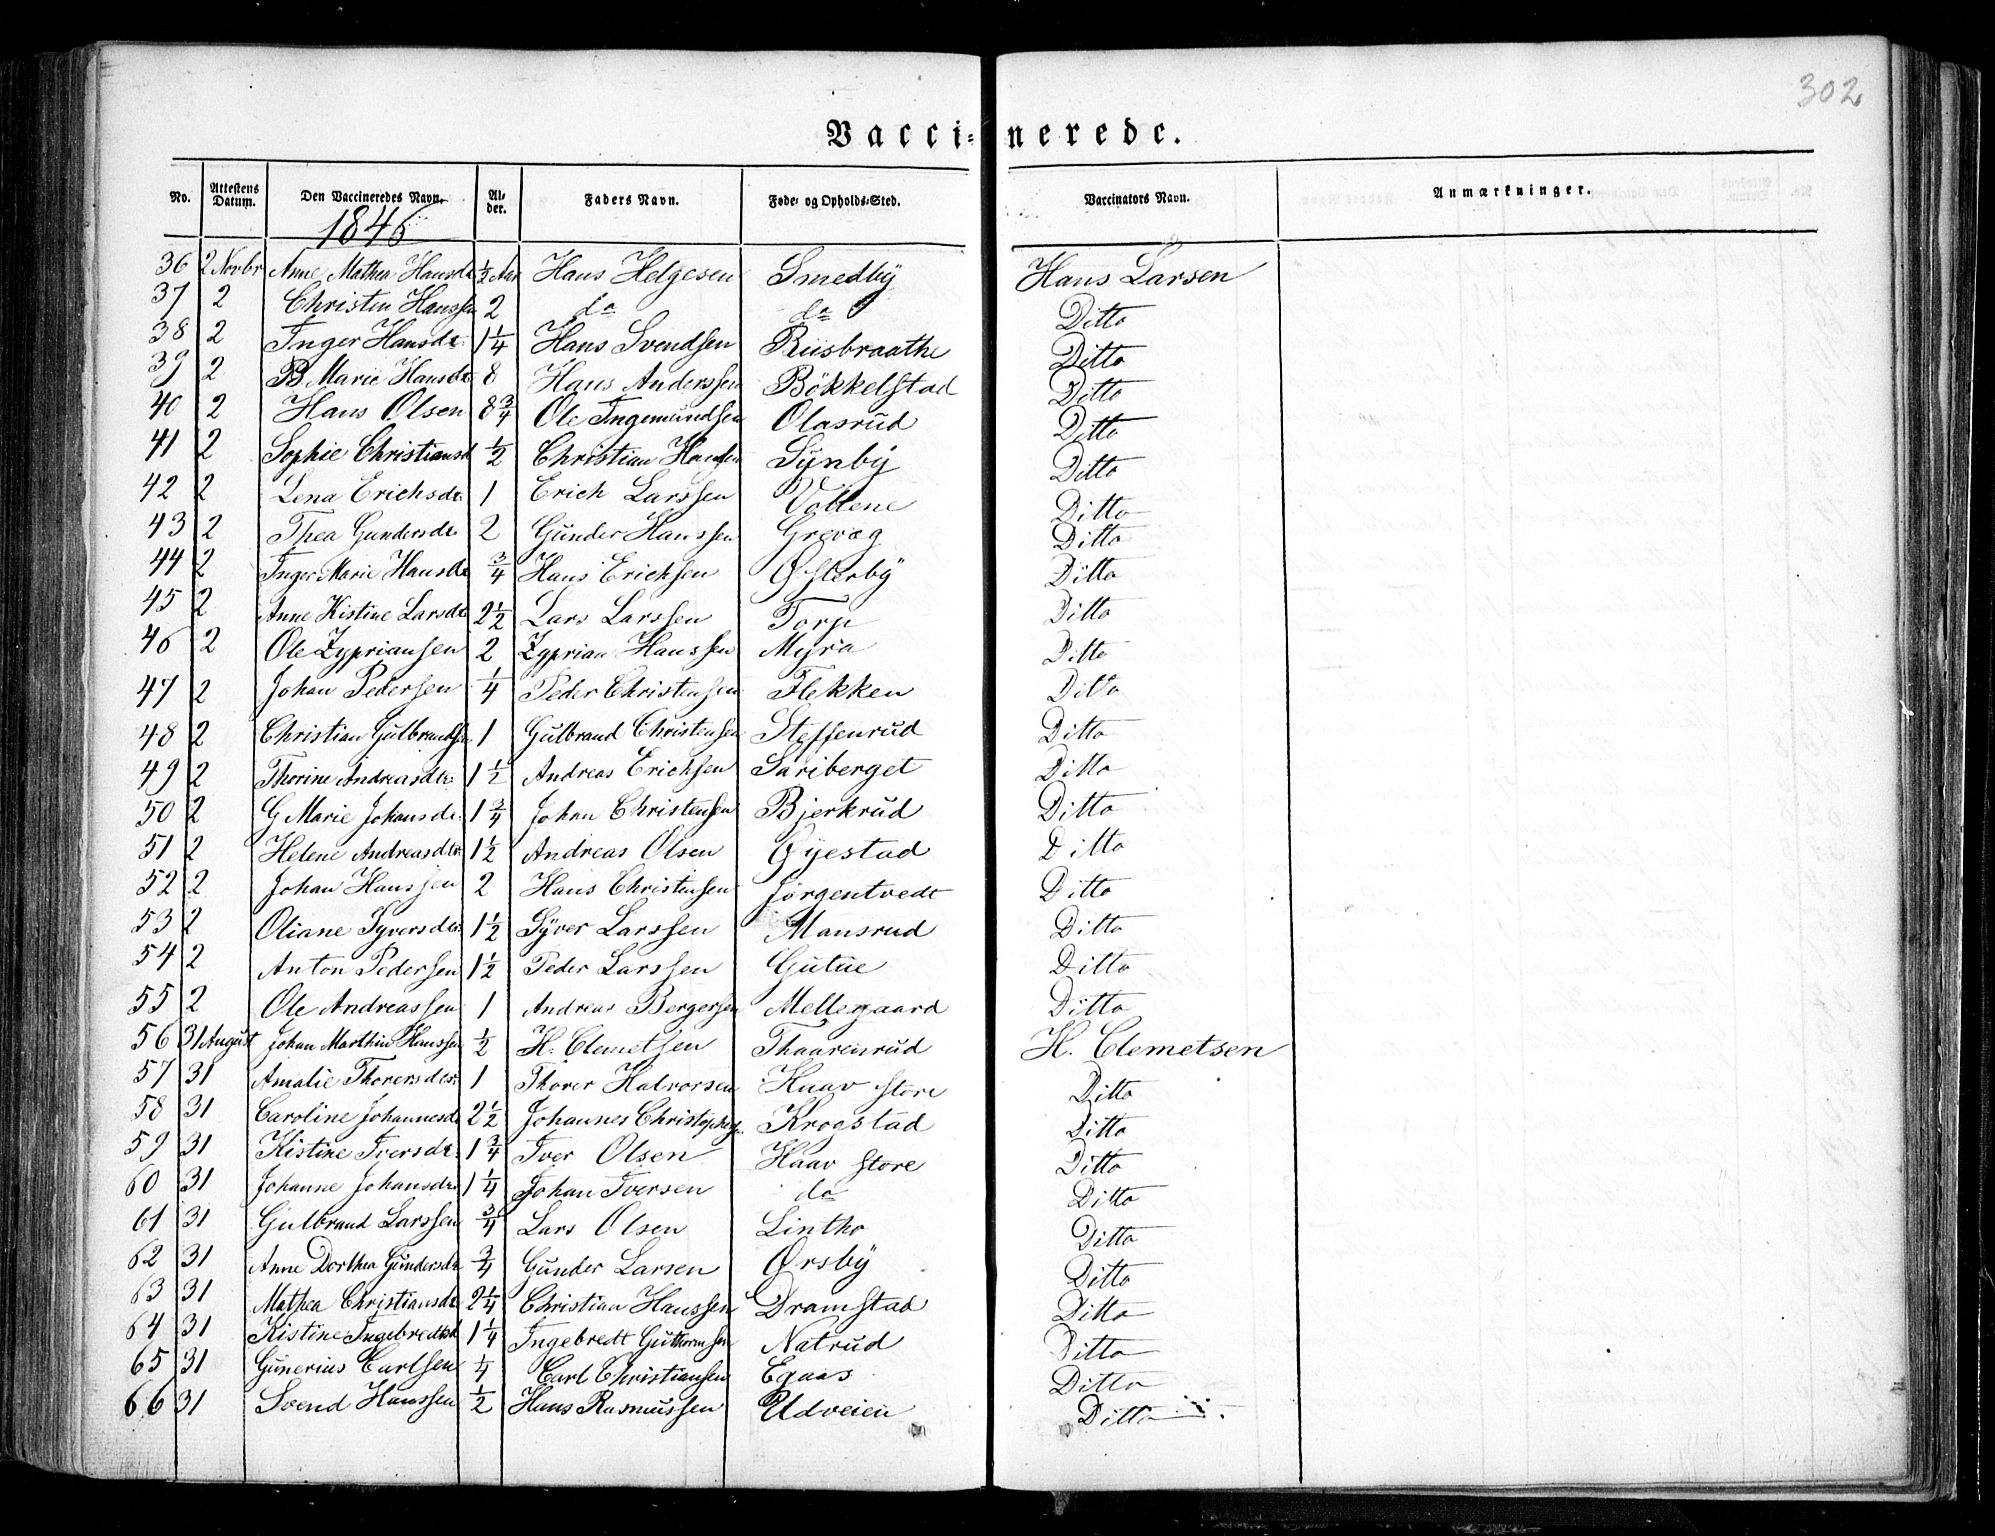 302
Vaccinerede.
No. Attestens Datum. Den Vaccineredes Navn. Alder. Faders Navn. Føde- og Opholds-Sted. Vaccinators Navn. Anmærkninger.
1846
36 2 Novbr Anne Mathea Hansdr ½ Aar Hans Helgesen Smedby Hans Larsen
37 2 Christen Hanssen 2 do do Ditto
38 2 Inger Hansdr 1¼ Hans Svendsen Riisbraathe Ditto
39 2 B Marie Hansdr 8 Hans Anderssen Bökkelstad Ditto
40 2 Hans Olsen 8¾ Ole Ingemundsen Olasrud Ditto
41 2 Sophie Christiansd ½ Christian Hansen Synby Ditto
42 2 Lena Erichsdr 1 Erich Larssen Vollene Ditto
43 2 Thea Gundersdr 2 Gunder Hanssen Grevog Ditto
44 2 Inger Marie Hansdr ¾ Hans Erichsen Østerby Ditto
45 2 Anne Kistine Larsdr 2½ Lars Larssen Torp Ditto
46 2 Ole Zypriansen 2 Zyprian Hanssen Myra Ditto
47 2 Johan Pedersen ¼ Peder Christensen Flekken Ditto
48 2 Christian Gulbrandsen 1 Gulbrand Christensen Steffenrud Ditto
49 2 Thorine Andreasdr 1½ Andreas Erichsen Sariberget Ditto
50 2 G Marie Johansdr 1¾ Johan Christensen Bjerkrud Ditto
51 2 Helene Andreasdtr 1½ Andreas Olsen Øyestad Ditto
52 2 Johan Hanssen 2 Hans Christensen Jörgentvedt Ditto
53 2 Oliane Syversdr 1½ Syver Larssen Mansrud Ditto
54 2 Anton Pedersen 1½ Peder Larssen Gutue Ditto
55 2 Ole Andreassen 1 Andreas Bergersen Mellegaard Ditto
56 31 August Johan Marthin Hanssen ½ H. Clemetsen Thaarenrud H. Clemetsen
57 31 Amalie Thorersdr 1 Thorer Halvorsen Haav store Ditto
58 31 Caroline Johannesdr 2½ Johannes Christophers Krogstad Ditto
59 31 Kistine Iversdr 1¾ Iver Olsen Haav store Ditto
60 31 Johanne Johansdr 1¼ Johan Iversen do Ditto
61 31 Gulbrand Larssen ¾ Lars Olsen Lintho Ditto
62 31 Anne Dorthea Gundersdr ¾ Gunder Larsen Ørsby Ditto
63 31 Mathea Christiansdr 2¼ Christian Hanssen Dramstad Ditto
64 31 Kistine Ingebredtsd 1¼ Ingebredt Guttormsen Natrud Ditto
65 31 Gunerius Carlsen ¼ Carl Christiansen Egaas Ditto
66 31 Svend Hanssen ½ Hans Rasmussen Udveien Ditto